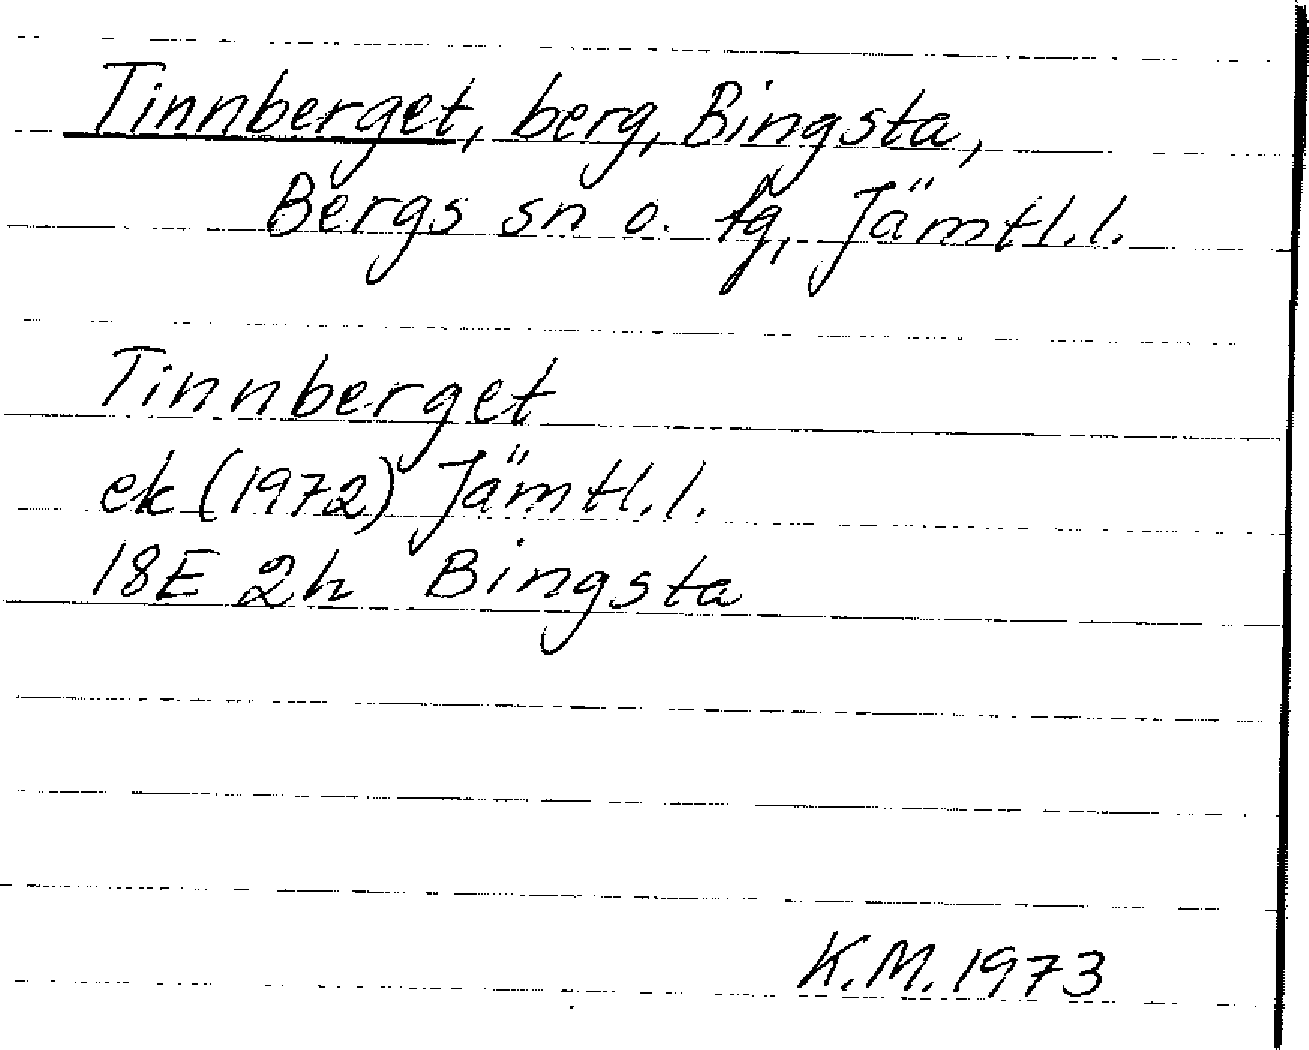 Tinnberget, berg, Bingsta,
Bergs sn o. tg, Jämtl.l.
Tinnberget
ek (1972) Jämtl.l.
18E 2h Bingsta
K.M. 1973